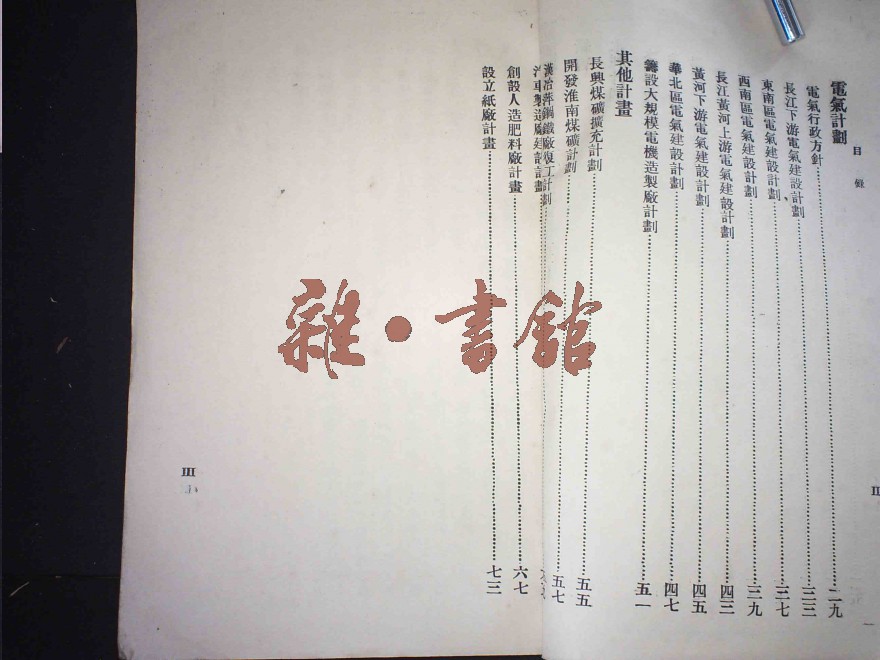 目錄
電氣計劃
電氣行政方針……二九
長江下游電氣建設計劃……三三
東南區電氣建設計劃……三七
西南區電氣建設計劃……三九
長江黃河上游電氣建設計劃……四三
黃河下游電氣建設計劃……四五
華北區電氣建設計劃……四七
籌設大規模電機造製廠計劃……五一
II
其他計畫
長興煤礦擴充計劃……五五
開發淮南煤礦計劃……五七
漢冶萍鋼鐵廠復工計劃……
車製造廠建設計劃……
創設人造肥料廠計畫……六七
設立紙廠計畫……七三
III
雜·書館